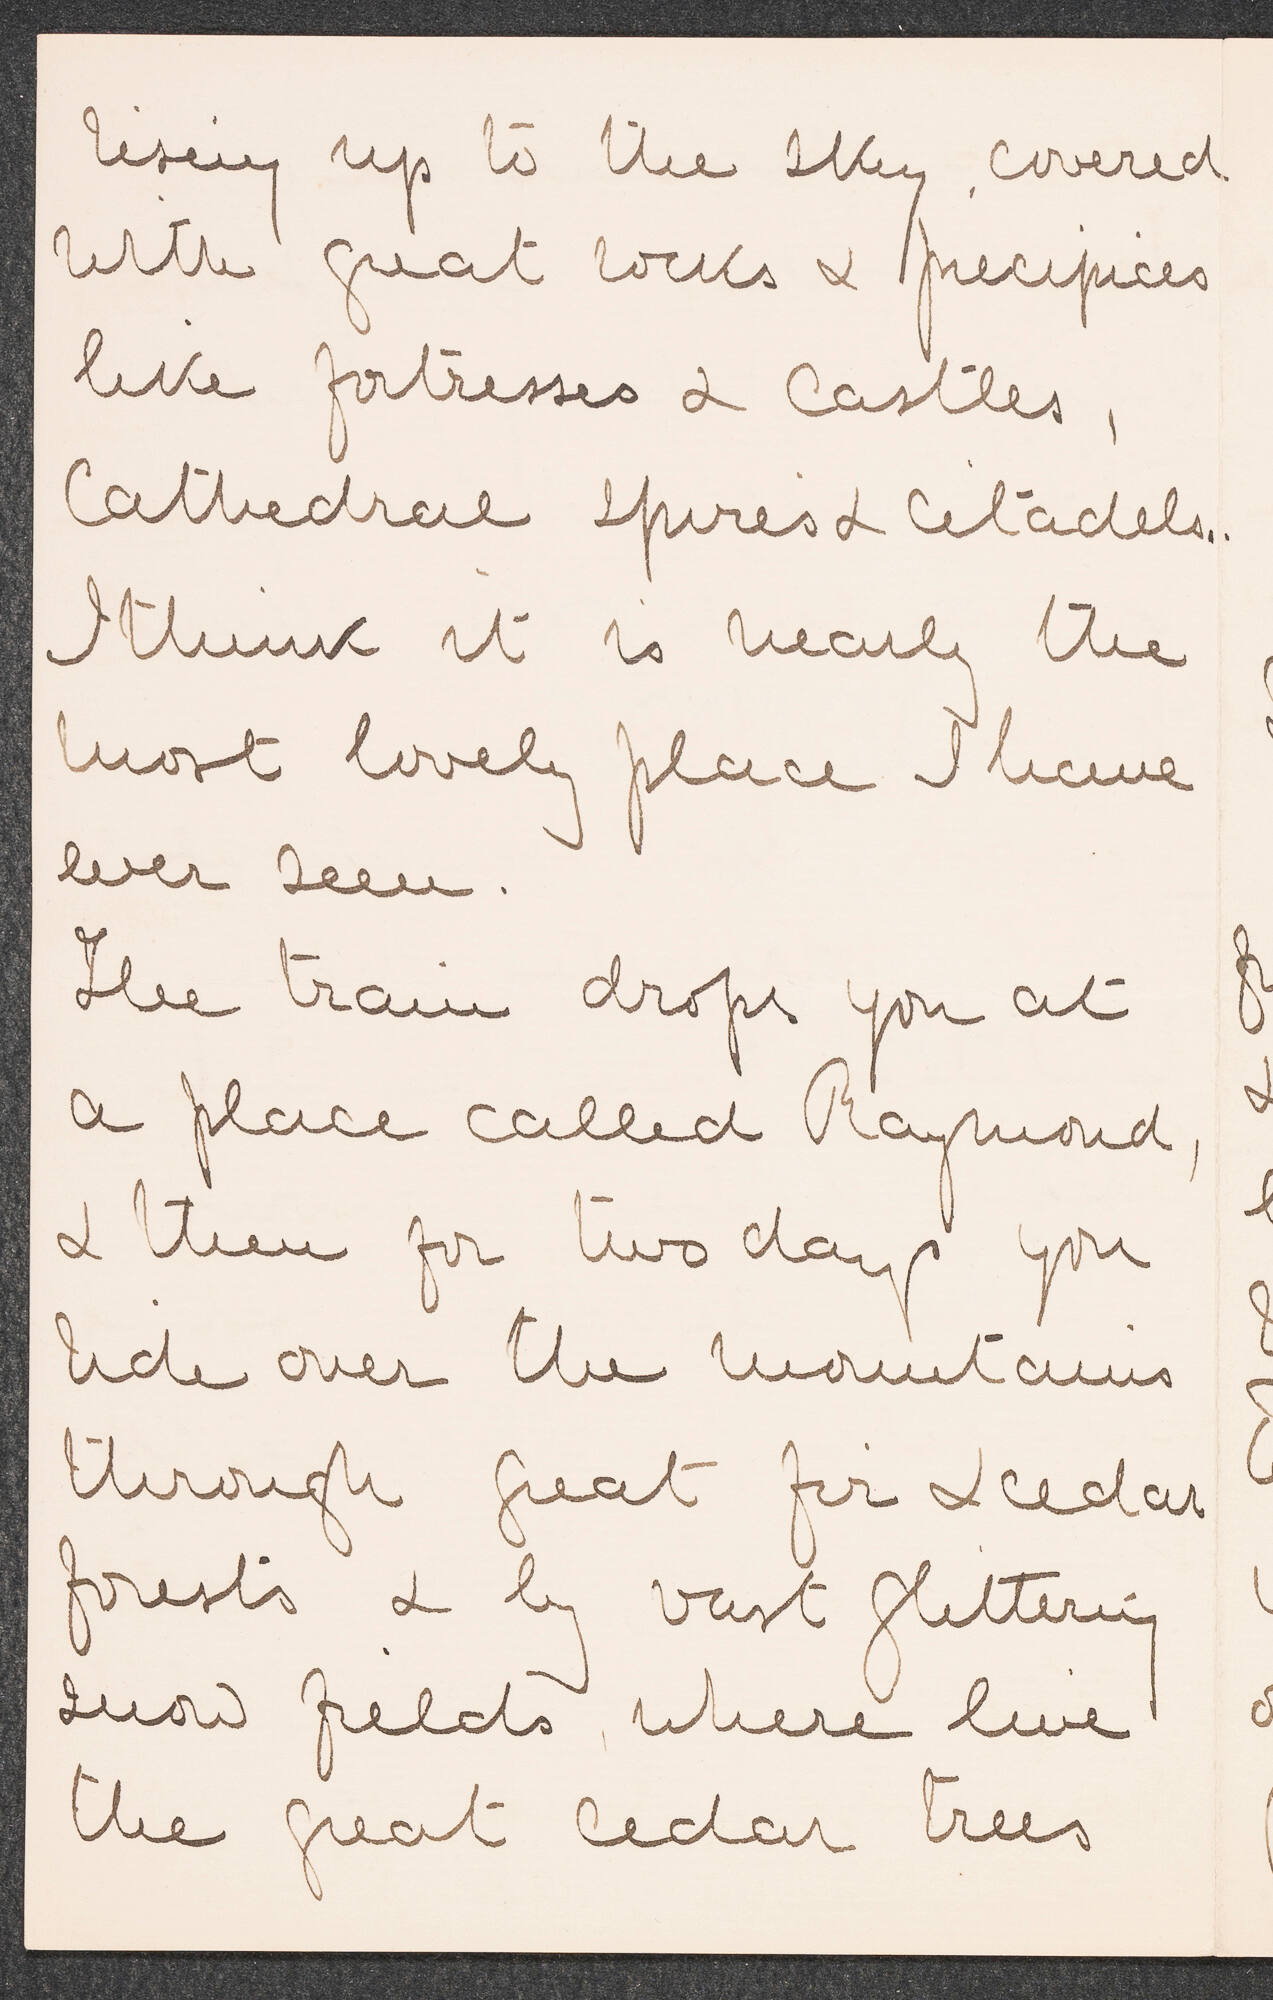 rising up to the sky, covered
with great rocks & precipices
like fortresses & Castles,
Cathedral spires & Citadels..
I think it is nearly the
most lovely place I have
ever seen.
The train drops you at
a place called Raymond,
& then for two days you
ride over the mountains
through great fir & cedar
forests & by vast glittering
snow fields, where live
the great cedar trees